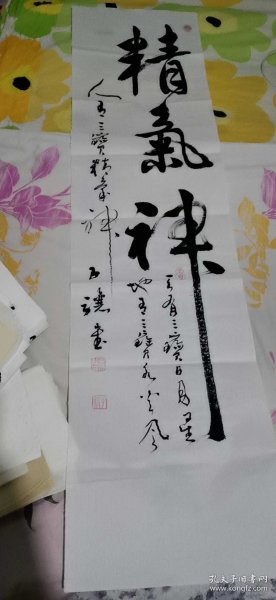 精氣神
天有三寶日月星
地有三寶水火風
人有三寶精氣神
孔夫子旧书网
www.kongfz.com